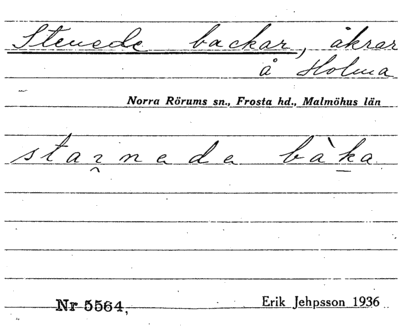 Stenede backar, åkrar
å Holma
Norra Rörums sn., Frosta hd., Malmöhus län
staɪ̯nede bàka
Nr 5564,
Erik Jehpsson 1936